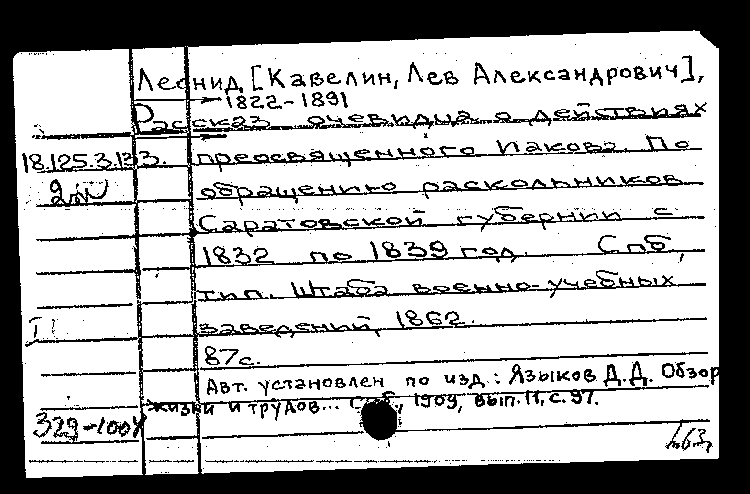 Леонид, [Кавелин, Лев Александрович],
1822-1891
Рассказ очевидца о действиях
18.125.3.123. преосвященного Иакова. По
обращению раскольников
Саратовской губернии с
1832 по 1839 год. Спб,
тип. Штаба военно-учебных
II заведений, 1862.
87с.
Авт. установлен по изд.: Языков Д.Д. Обзор
жизни и трудов... Спб, 1909, вып. 11, с. 97.
329-100У